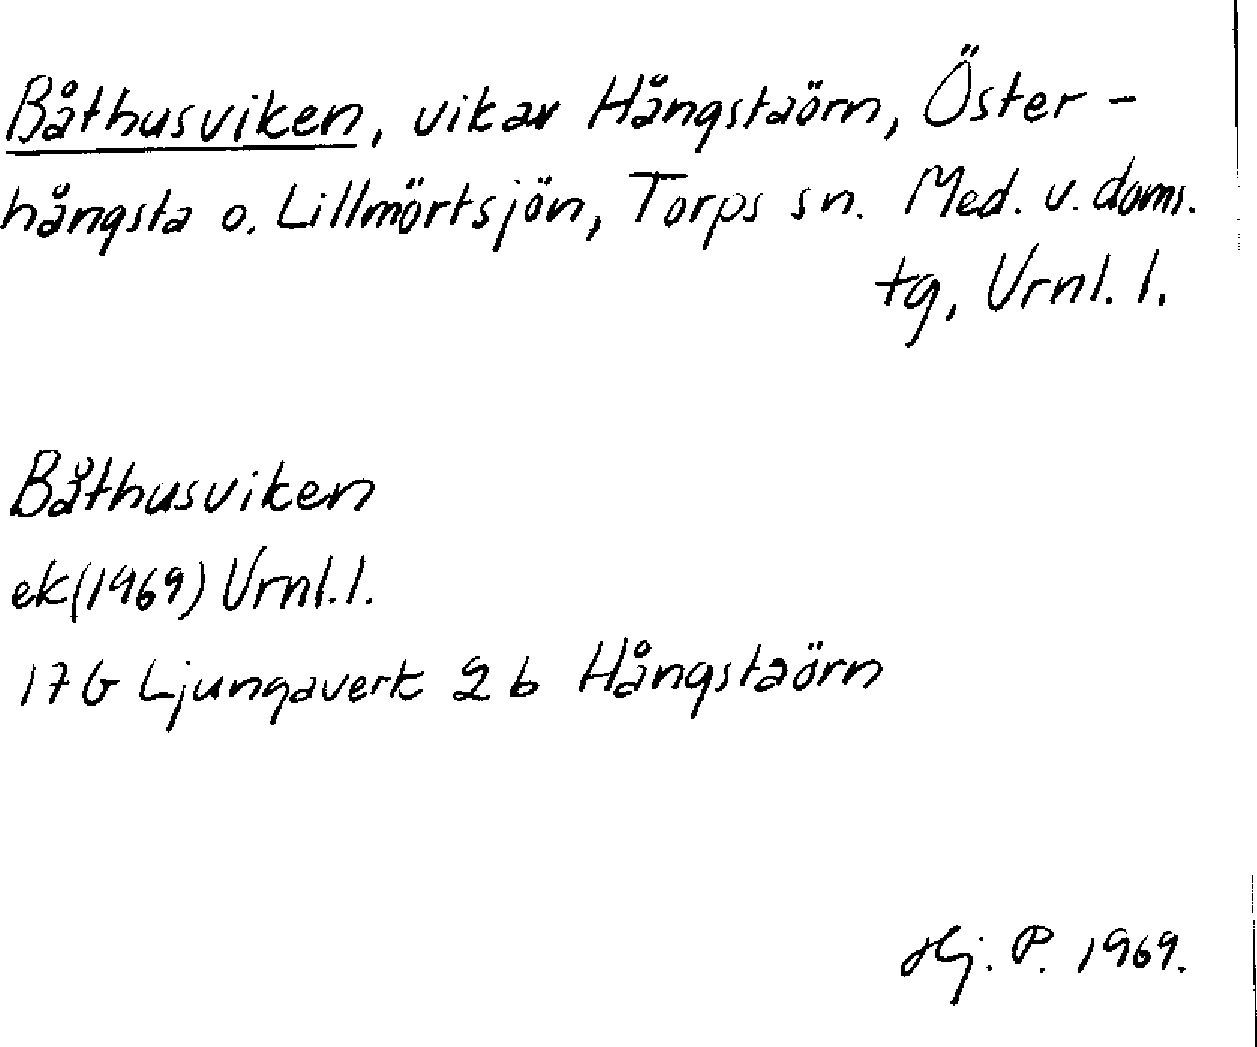 Båthusviken, vik av Hångstaörn, Öster-
hångsta o. Lillmörtsjön, Torps sn. Med. v. doms.
tg, Urnl. l.
Båthusviken
ek (1969) Urnl. l.
17 G Ljungaverk 2 b Hångstaörn
Hj. P. 1969.